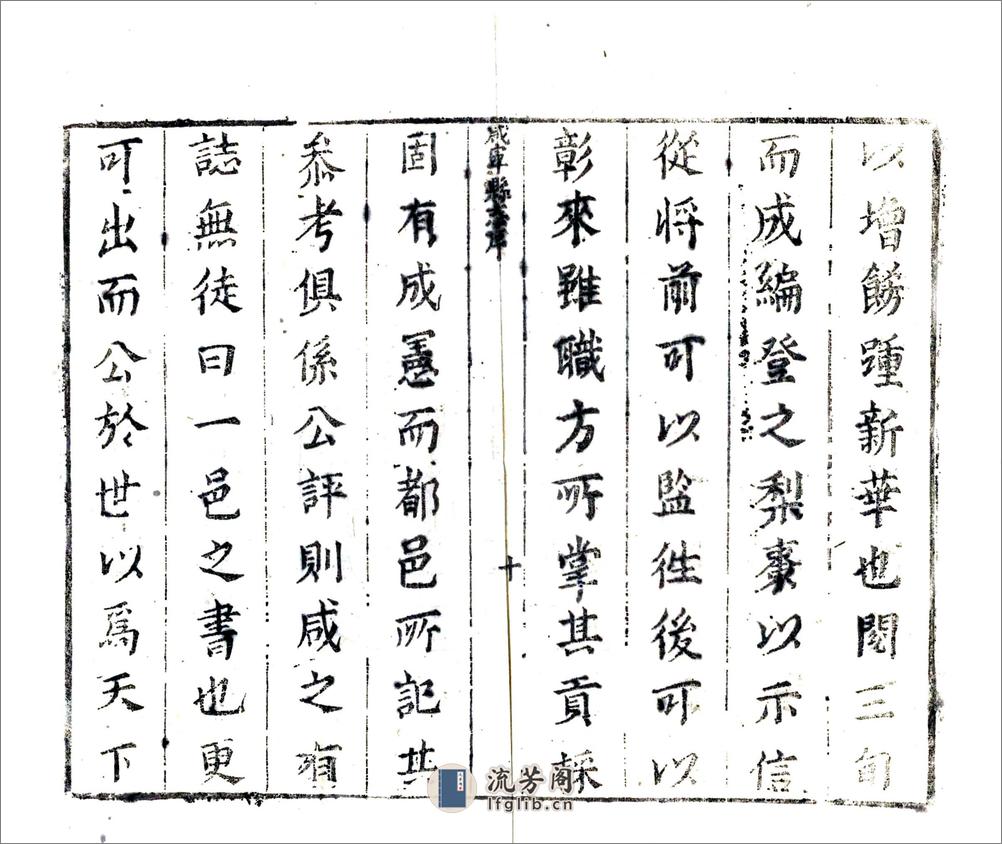 以增餙踵新華也閱三旬
而成編登之梨棗以示信
從將前可以監徃後可以
彰來雖職方所掌其貢採
咸寧縣志序
十
固有成憲而都邑所記其
叅考俱係公評則咸之有
誌無徒曰一邑之書也更
可出而公於世以爲天下
流芳阁
lfglib.cn